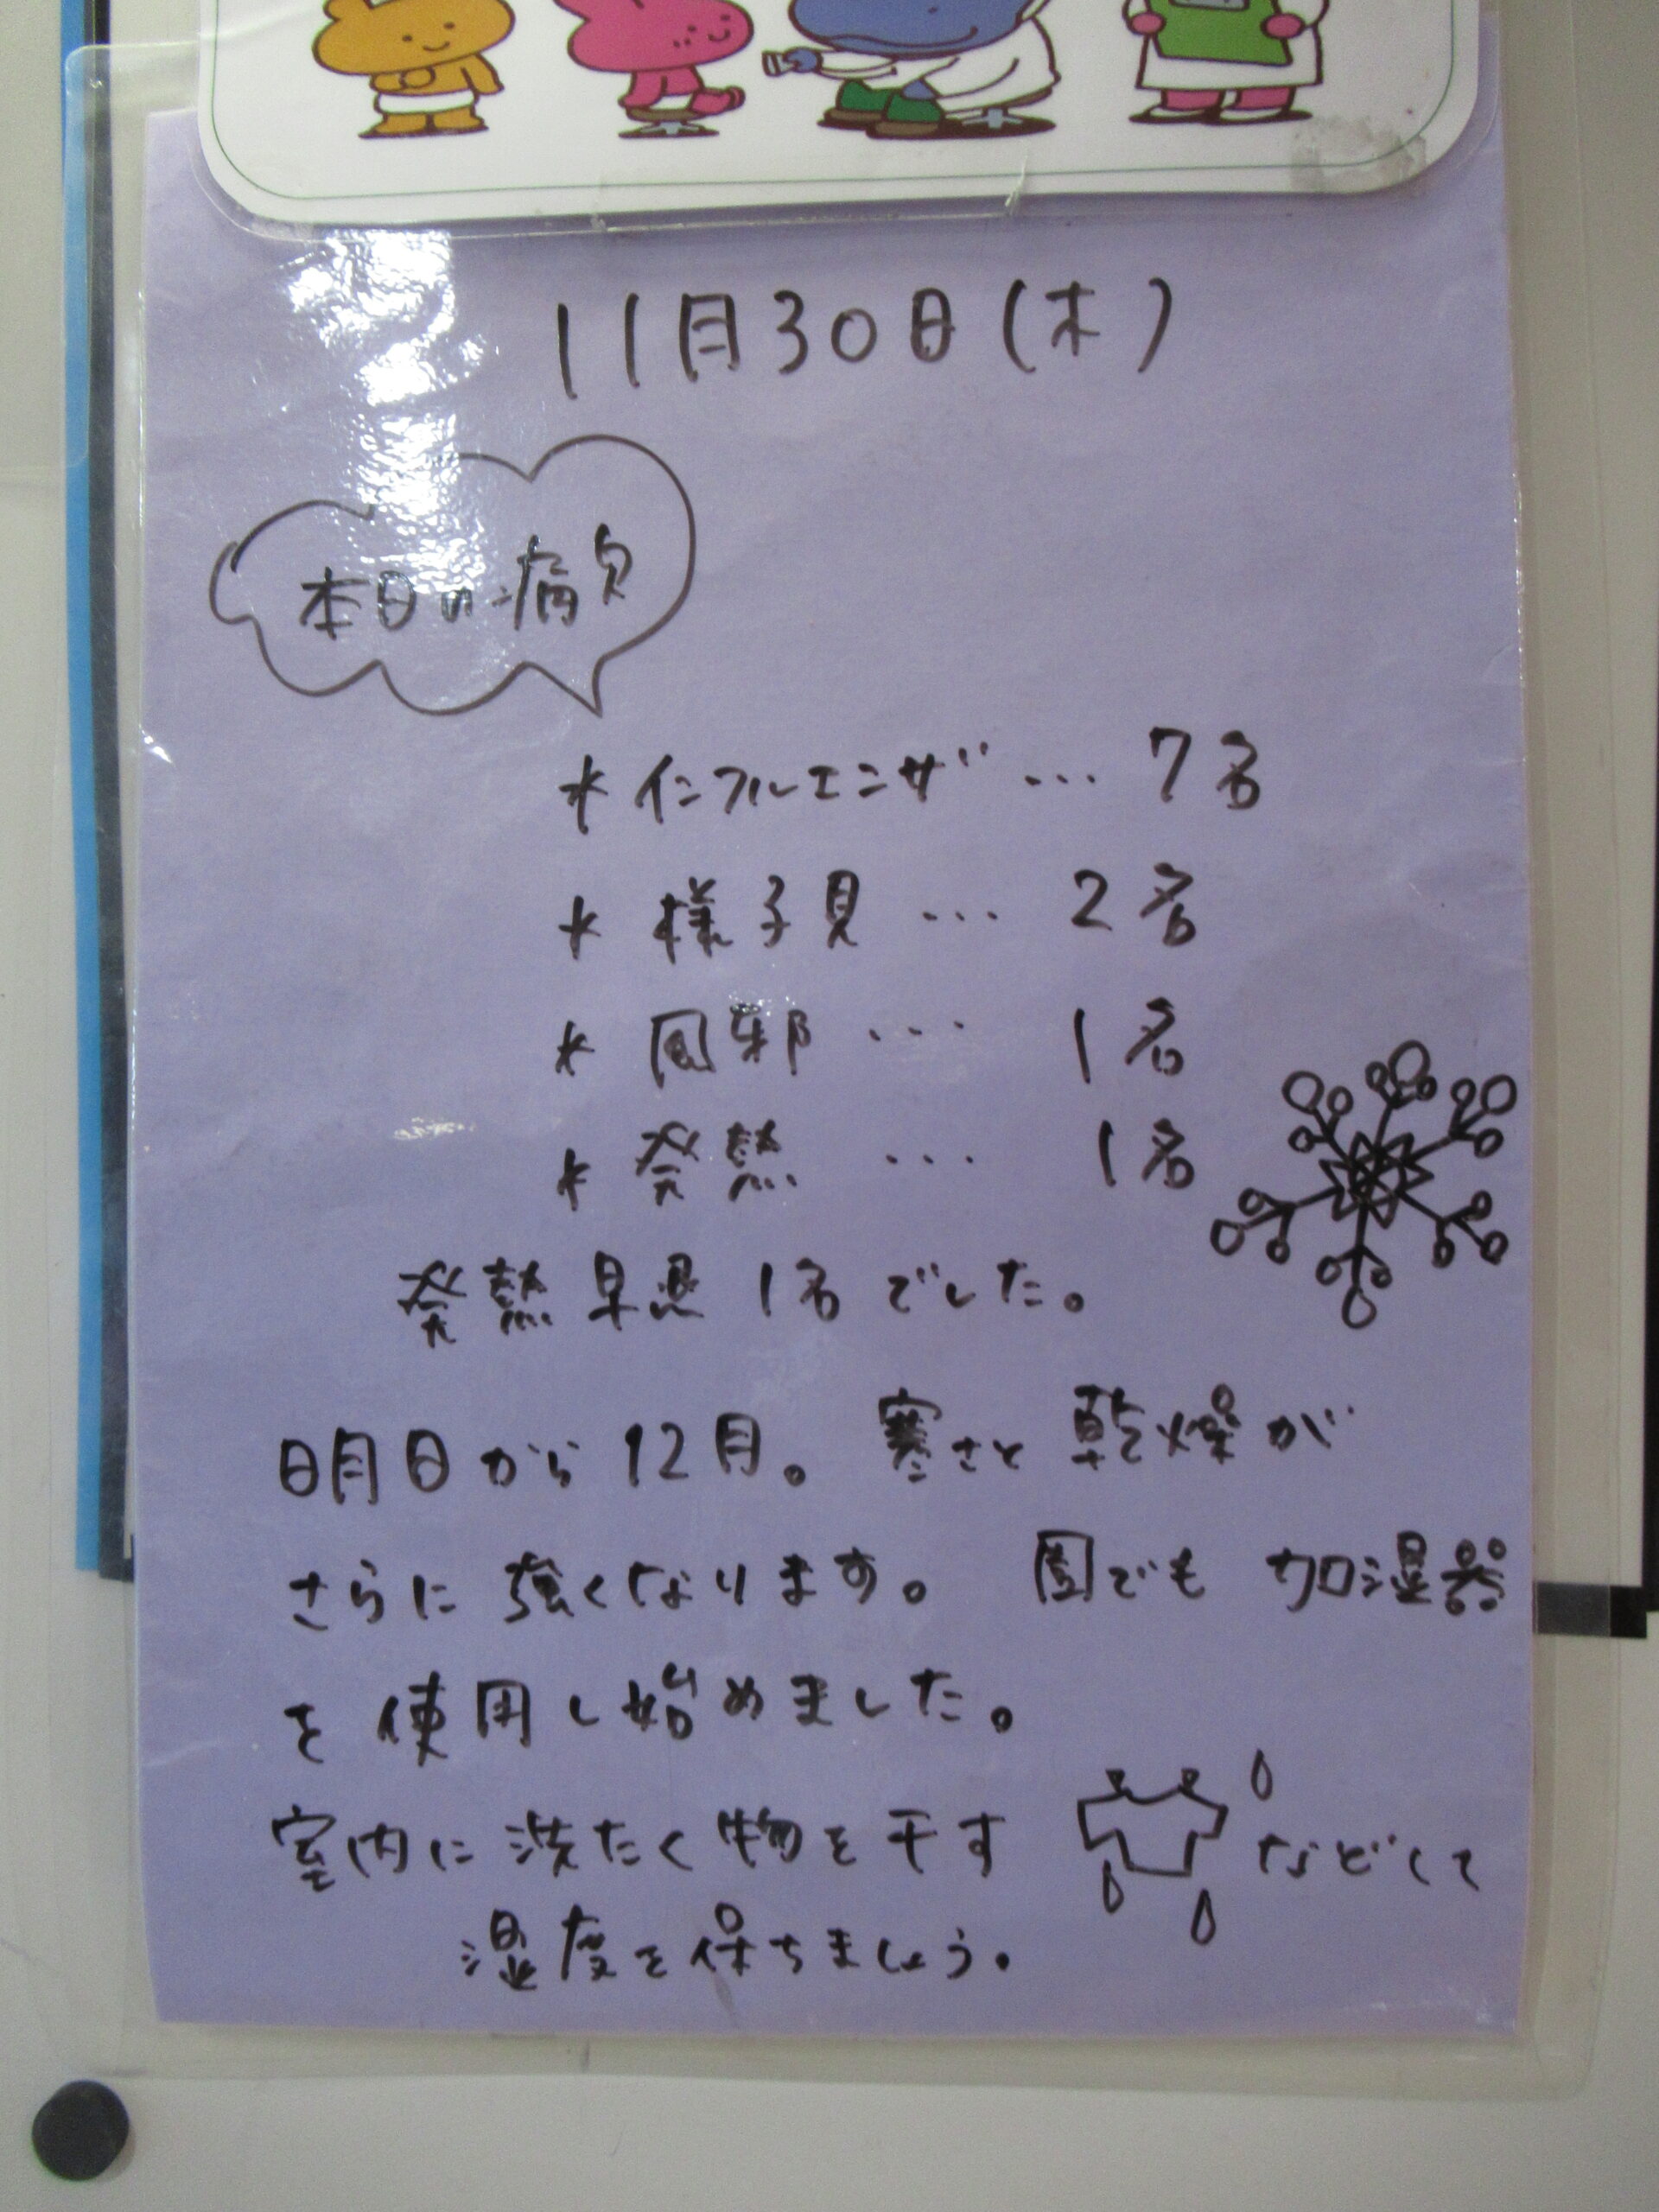 11月30日(木)
本日の病欠
* インフルエンザ … 7名
* 様子見 … 2名
* 風邪 … 1名
* 発熱 … 1名
発熱早退 1名でした。
明日から12月。寒さと乾燥が
さらに強くなります。園でも加湿器
を使用し始めました。
室内に洗たく物を干す などして
湿度を保ちましょう。